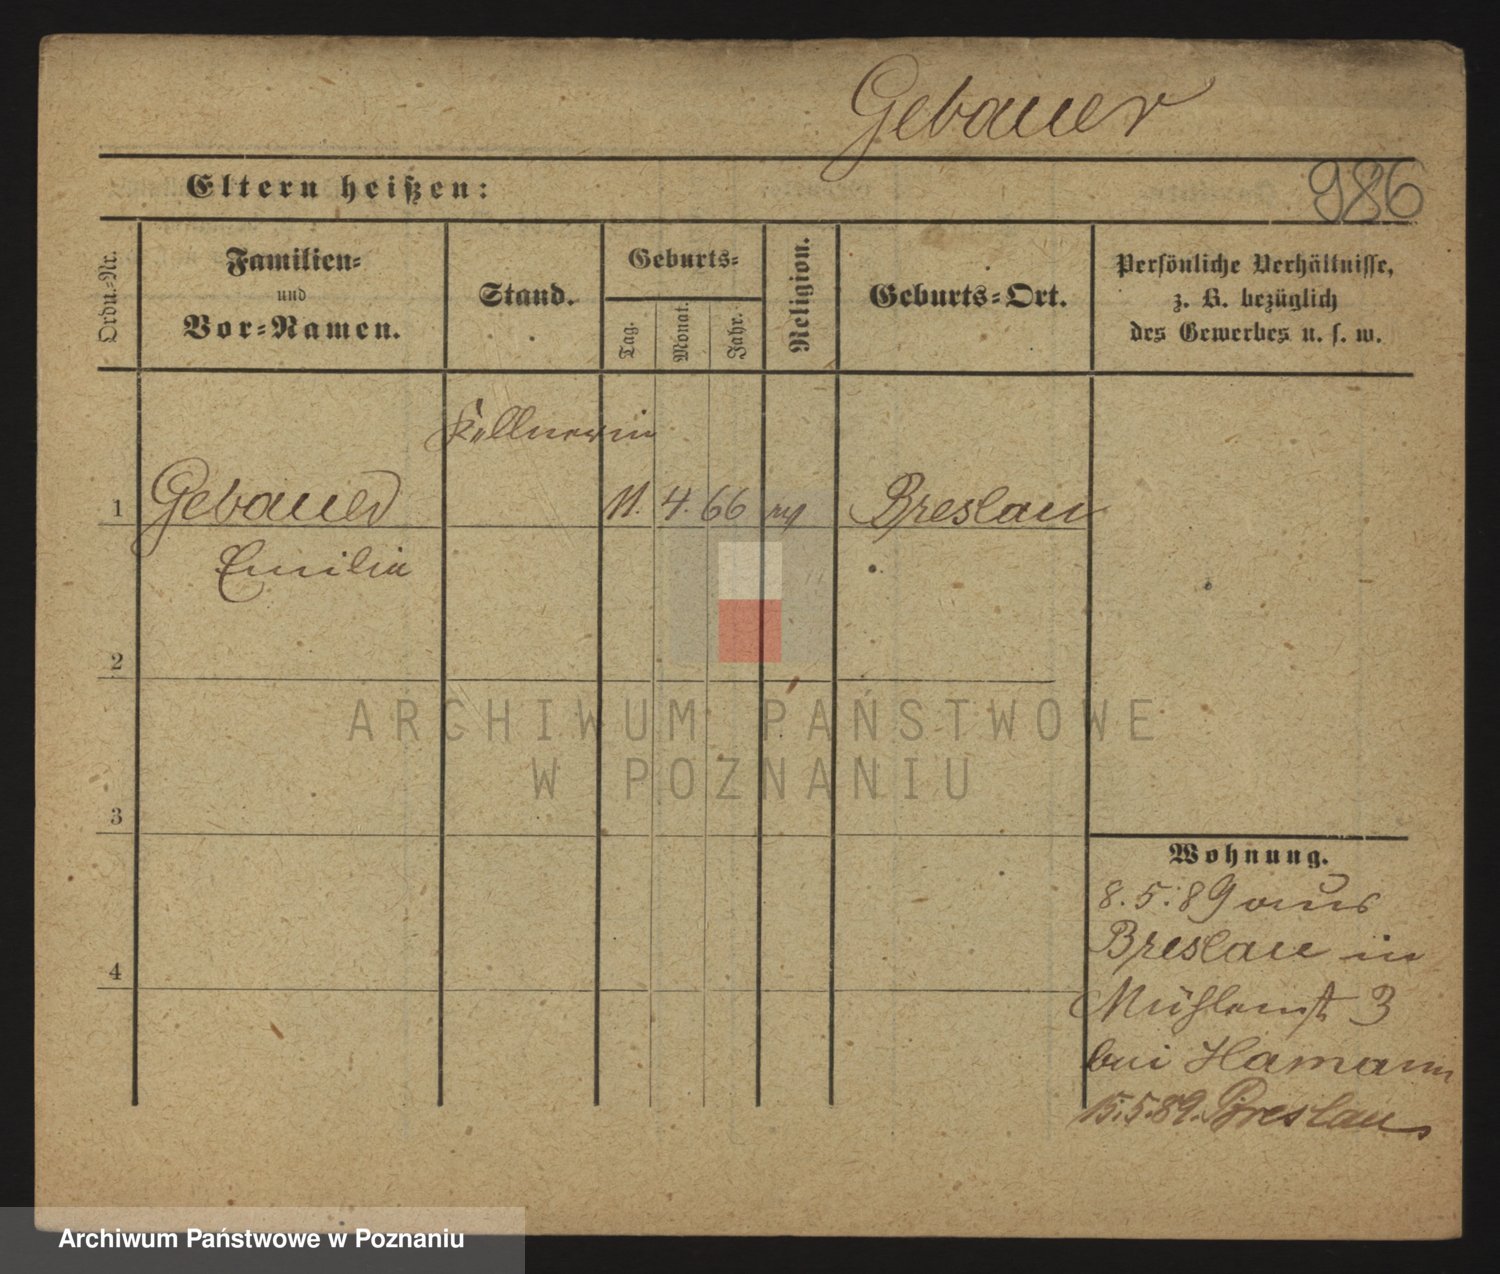 Gebauer
Eltern heißen:
986
Ordn.-Nr.
Familien-
und
Vor-Namen.
Stand.
Geburts-
Tag.
Monat.
Jahr.
Religion.
Geburts-Ort.
Persönliche Verhältnisse,
z. B. bezüglich
des Gewerbes u. s. w.
Kellnerin
1 Gebauer 11. 4. 66 Breslau
Emilie
2
3
4
Wohnung.
8.5.89 aus
Breslau in
Mühlenst 3
bei Hamann
15.5.89. Breslau
ARCHIWUM PAŃSTWOWE
W POZNANIU
Archiwum Państwowe w Poznaniu